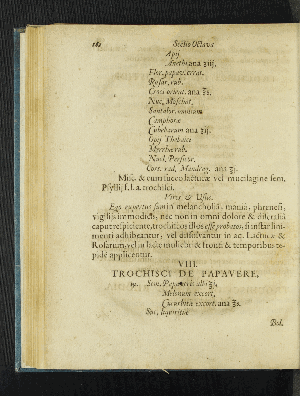 Sectio Octava
Apij
Anethi ana ʒiij.
Flor. papav. errat.
Rosar. rub.
Croci orient. ana ʒs.
Nuc. Moschat.
Santalor. omnium
Camphoræ
Cubebarum ana ʒij.
Opij Thebaici
Myrrhæ rub.
Nucl. Persicor.
Cort. rad. Mandrag. ana ʒj.
Misc. & cum succo lactucæ vel mucilagine sem.
Psyllij f. l. a. trochisci.
Vires & Usus.
Ego expertus sum in melancholia, mania, phrenesi,
vigiliis immodicis, nec non in omni dolore &
capitis trochiscos illos esse probatos, si instar lini-
menti adhibeantur, vel dissolvantur in aq. Lactucæ &
Rosarum, vel in lacte mulieri & fronti & temporibus te-
pide applicentur.
VIII.
TROCHISCI DE PAPAVERE,
℞. Sem. Papaveris albi ʒj.
Melonum excort.
Cucurbitæ excort. ana ʒs.
Suc. liquiritiæ
Bol.